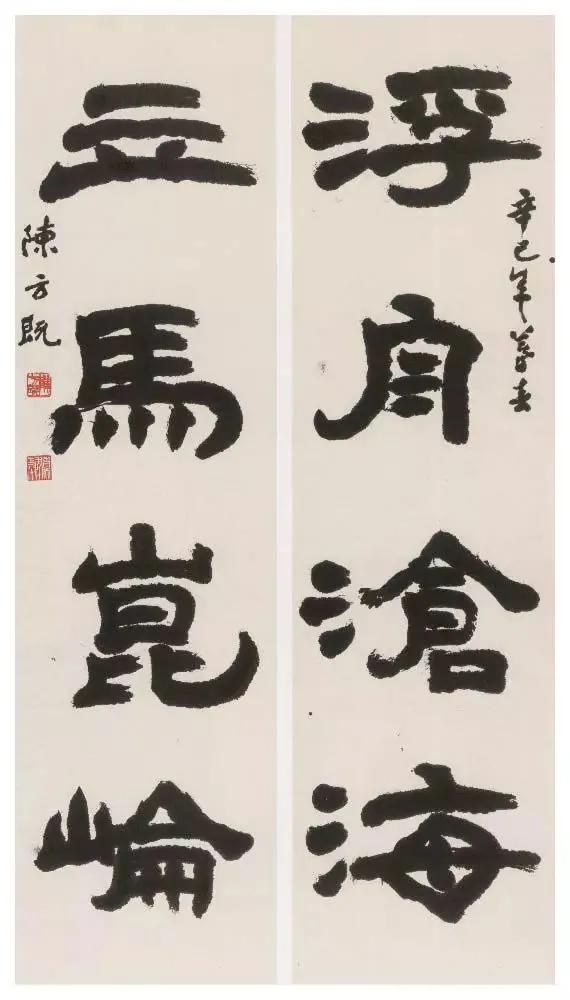 浮舟滄海
辛巳年暮春
立馬崑崙
陳方既